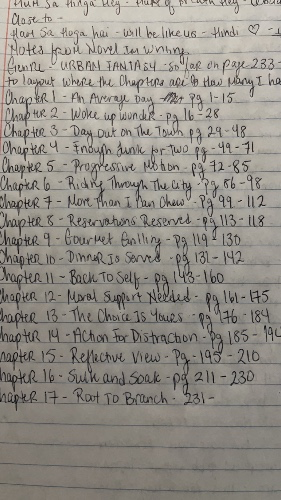 Close to -
Hum Sa Hoga hai - will be like us - Hindi ♡
Notes from Novel Im Writing.
Genre - URBAN FANTASY - So far on page 233 -
to layout where the Chapters are & How Many I ha
Chapter 1 - An Average Day - pg 1-15
Chapter 2 - Woke up wonder - pg 16-28
Chapter 3 - Day Out on The Town pg 29-48
Chapter 4 - Enough Junk for Two pg 49-71
Chapter 5 - Progressive Motion - pg 72-85
Chapter 6 - Riding Through The City - pg 86-98
Chapter 7 - More Than I Can Chew - Pg 99-112
Chapter 8 - Reservations Reserved - pg 113-118
Chapter 9 - Gourmet Grilling - Pg 119-130
Chapter 10 - Dinner Is Served - pg 131-142
Chapter 11 - Back To Self - pg 143-160
Chapter 12 - Moral Support Needed - pg 161-175
Chapter 13 - The Choice Is Yours - pg 176-184
Chapter 14 - Action For Distraction - pg 185-194
Chapter 15 - Reflective View - Pg - 195-210
Chapter 16 - Sulk and Soak - pg 211-230
Chapter 17 - Root To Branch - 231-